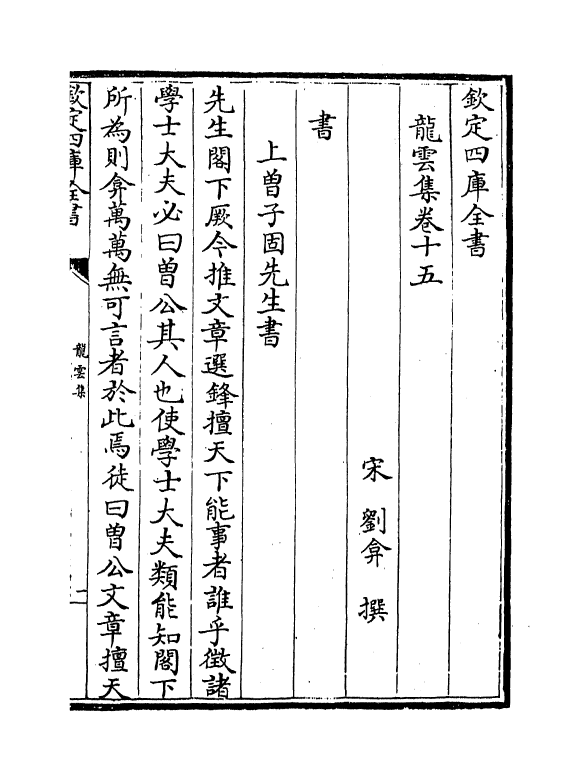 欽定四庫全書
龍雲集卷十五
宋 劉弇 撰
書
上曾子固先生書
先生閣下厥今推文章選鋒擅天下能事者誰乎徴諸
學士大夫必曰曾公其人也使學士大夫類能知閣下
所為則弇萬萬無可言者於此焉徒曰曾公文章擅天
欽定四庫全書
龍雲集